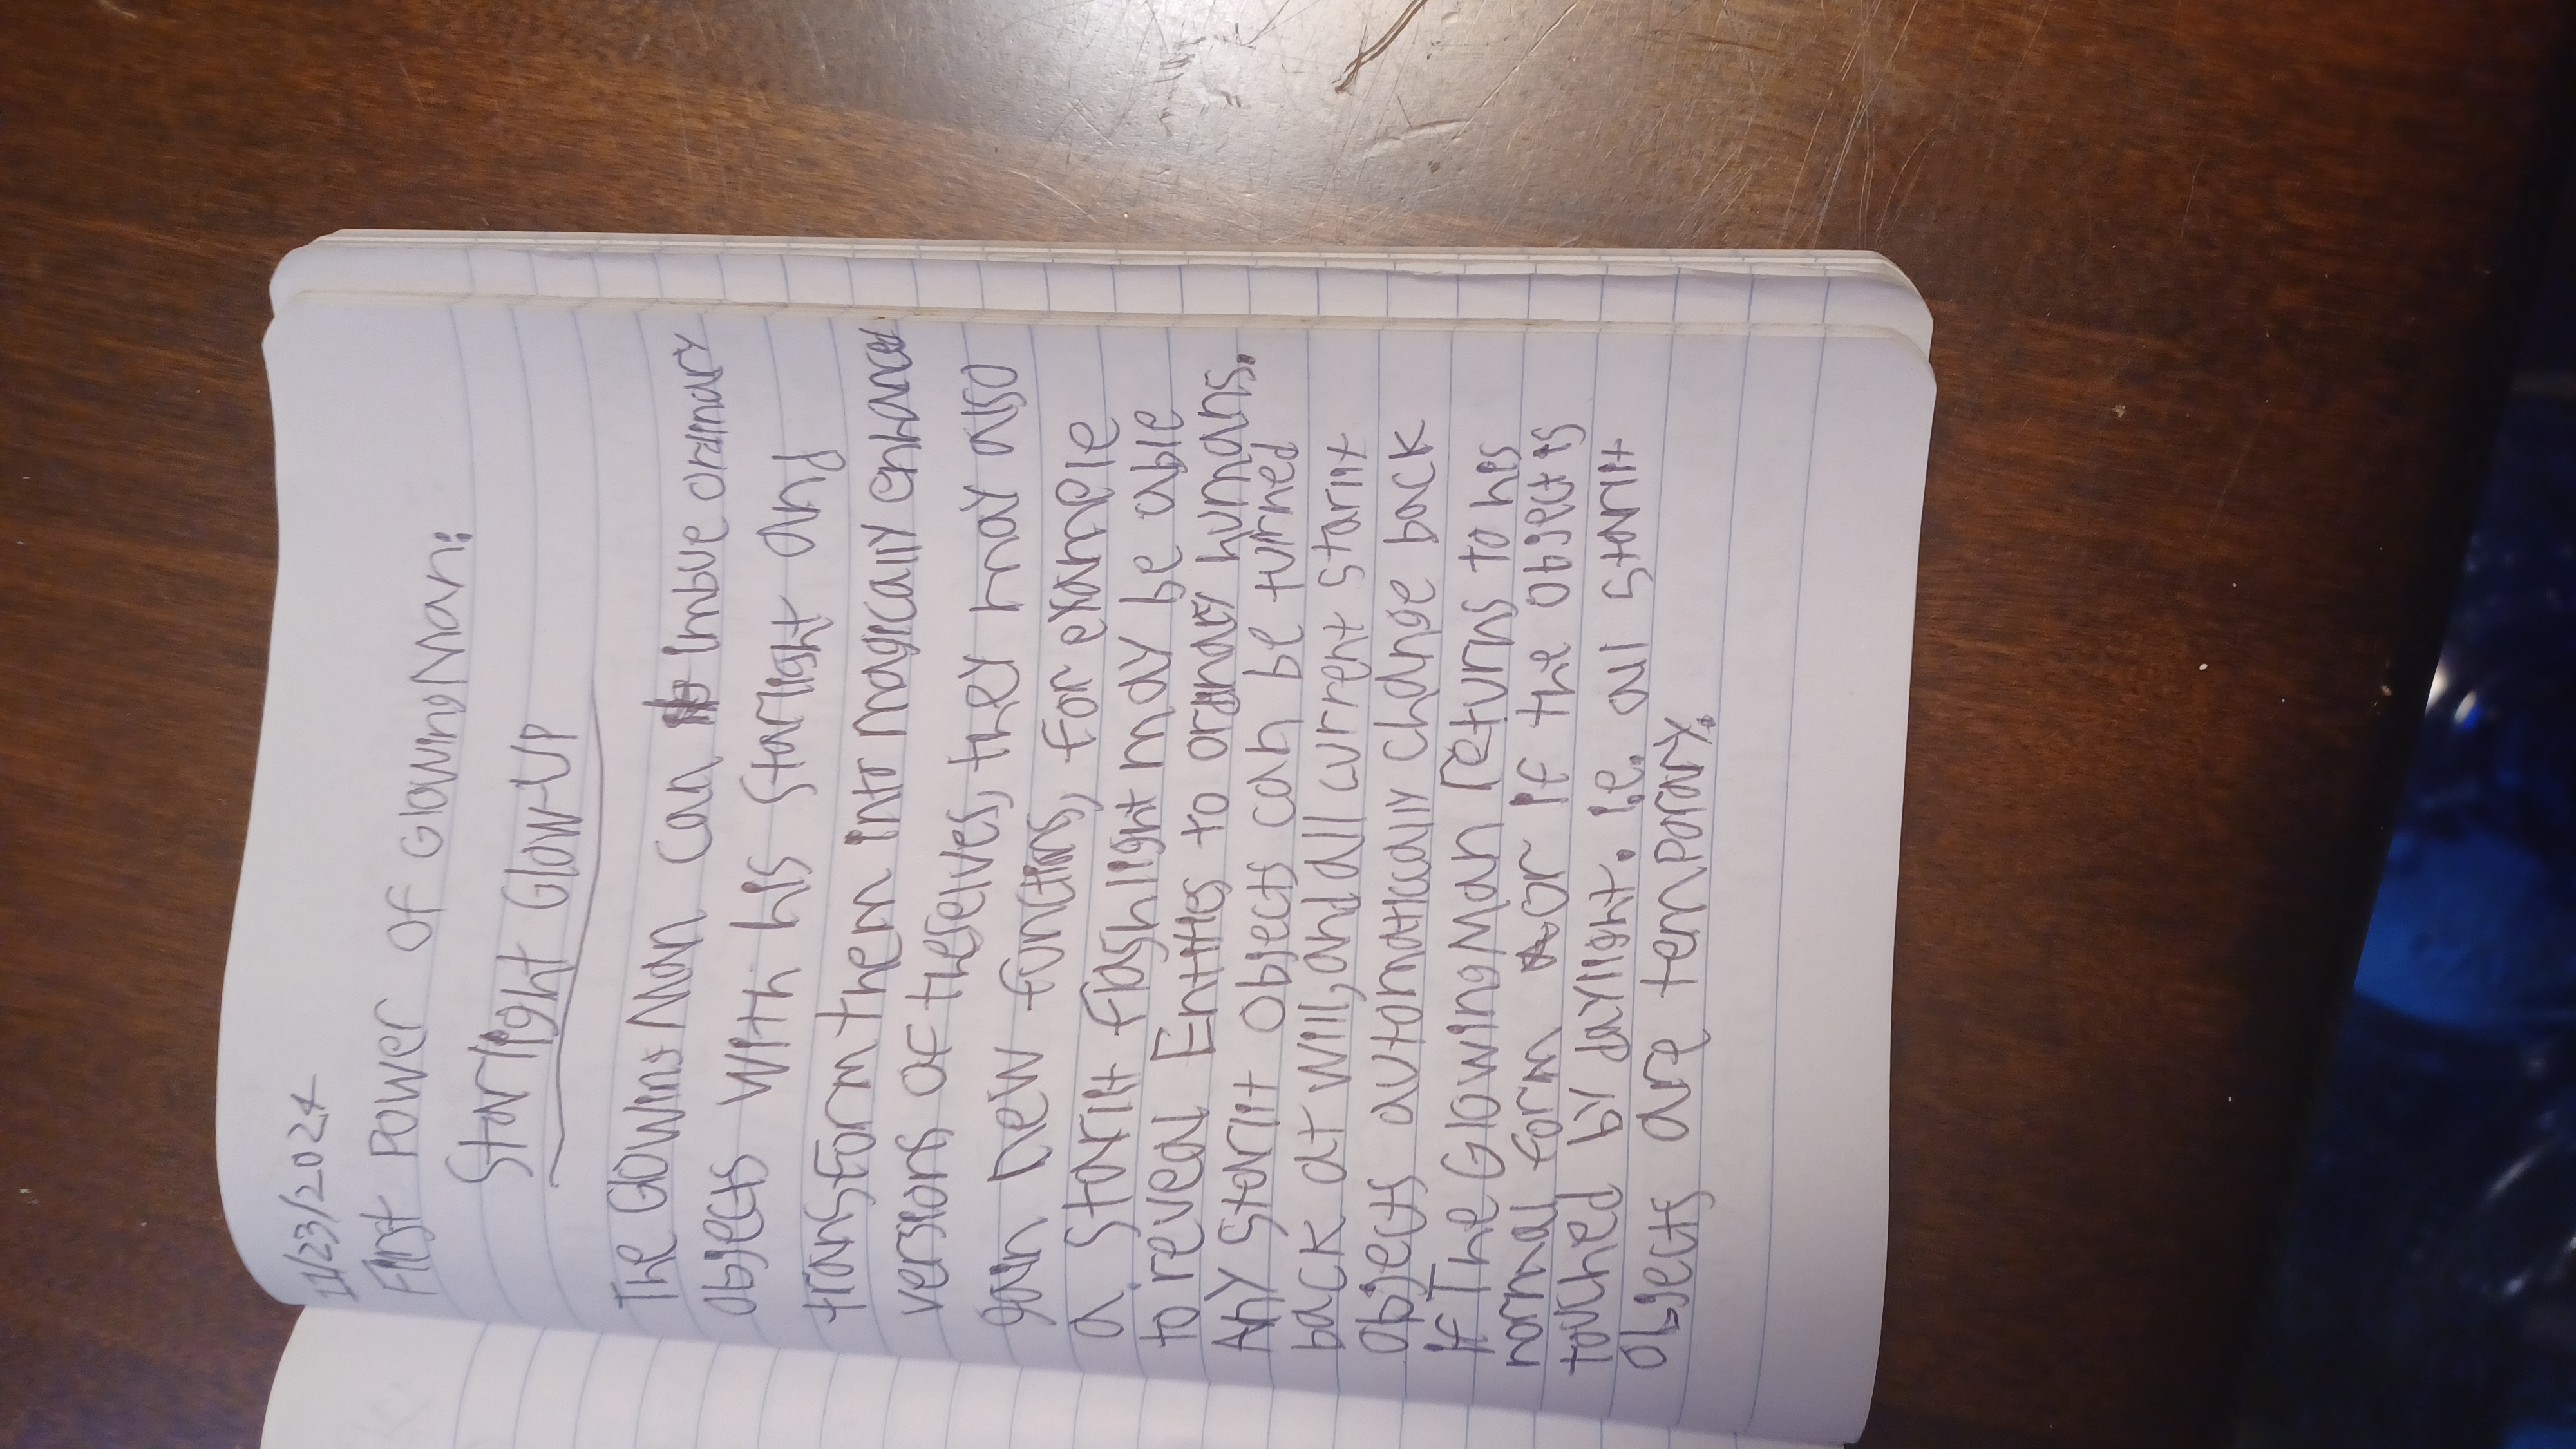 11/23/2024
First Power of GlowingMan:
Starlight Glow-Up
The GlowingMan can imbue ordinary
objects with his starlight and
transform them into magically enhanced
versions of theselves, they may also
gain new functions, for example
a starlit flashlight may be able
to reveal Entities to ordinary humans.
Any starlit objects can be turned
back at will, and all current starlit
objects automaticcally change back
if The GlowingMan returns to his
normal form or if the object is
touched by daylight. i.e. all starlit
objects are temporary.